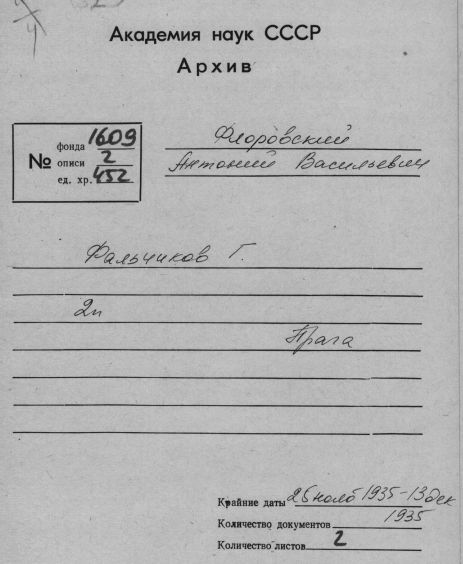 Академия наук СССР
Архив
№
фонда 1609
описи 2
ед. хр. 452
Флоровский
Антоний Васильевич
Фальчиков Г.
2п
Прага
Крайние даты 26 нояб 1935-13 дек
1935
Количество документов
Количество листов 2